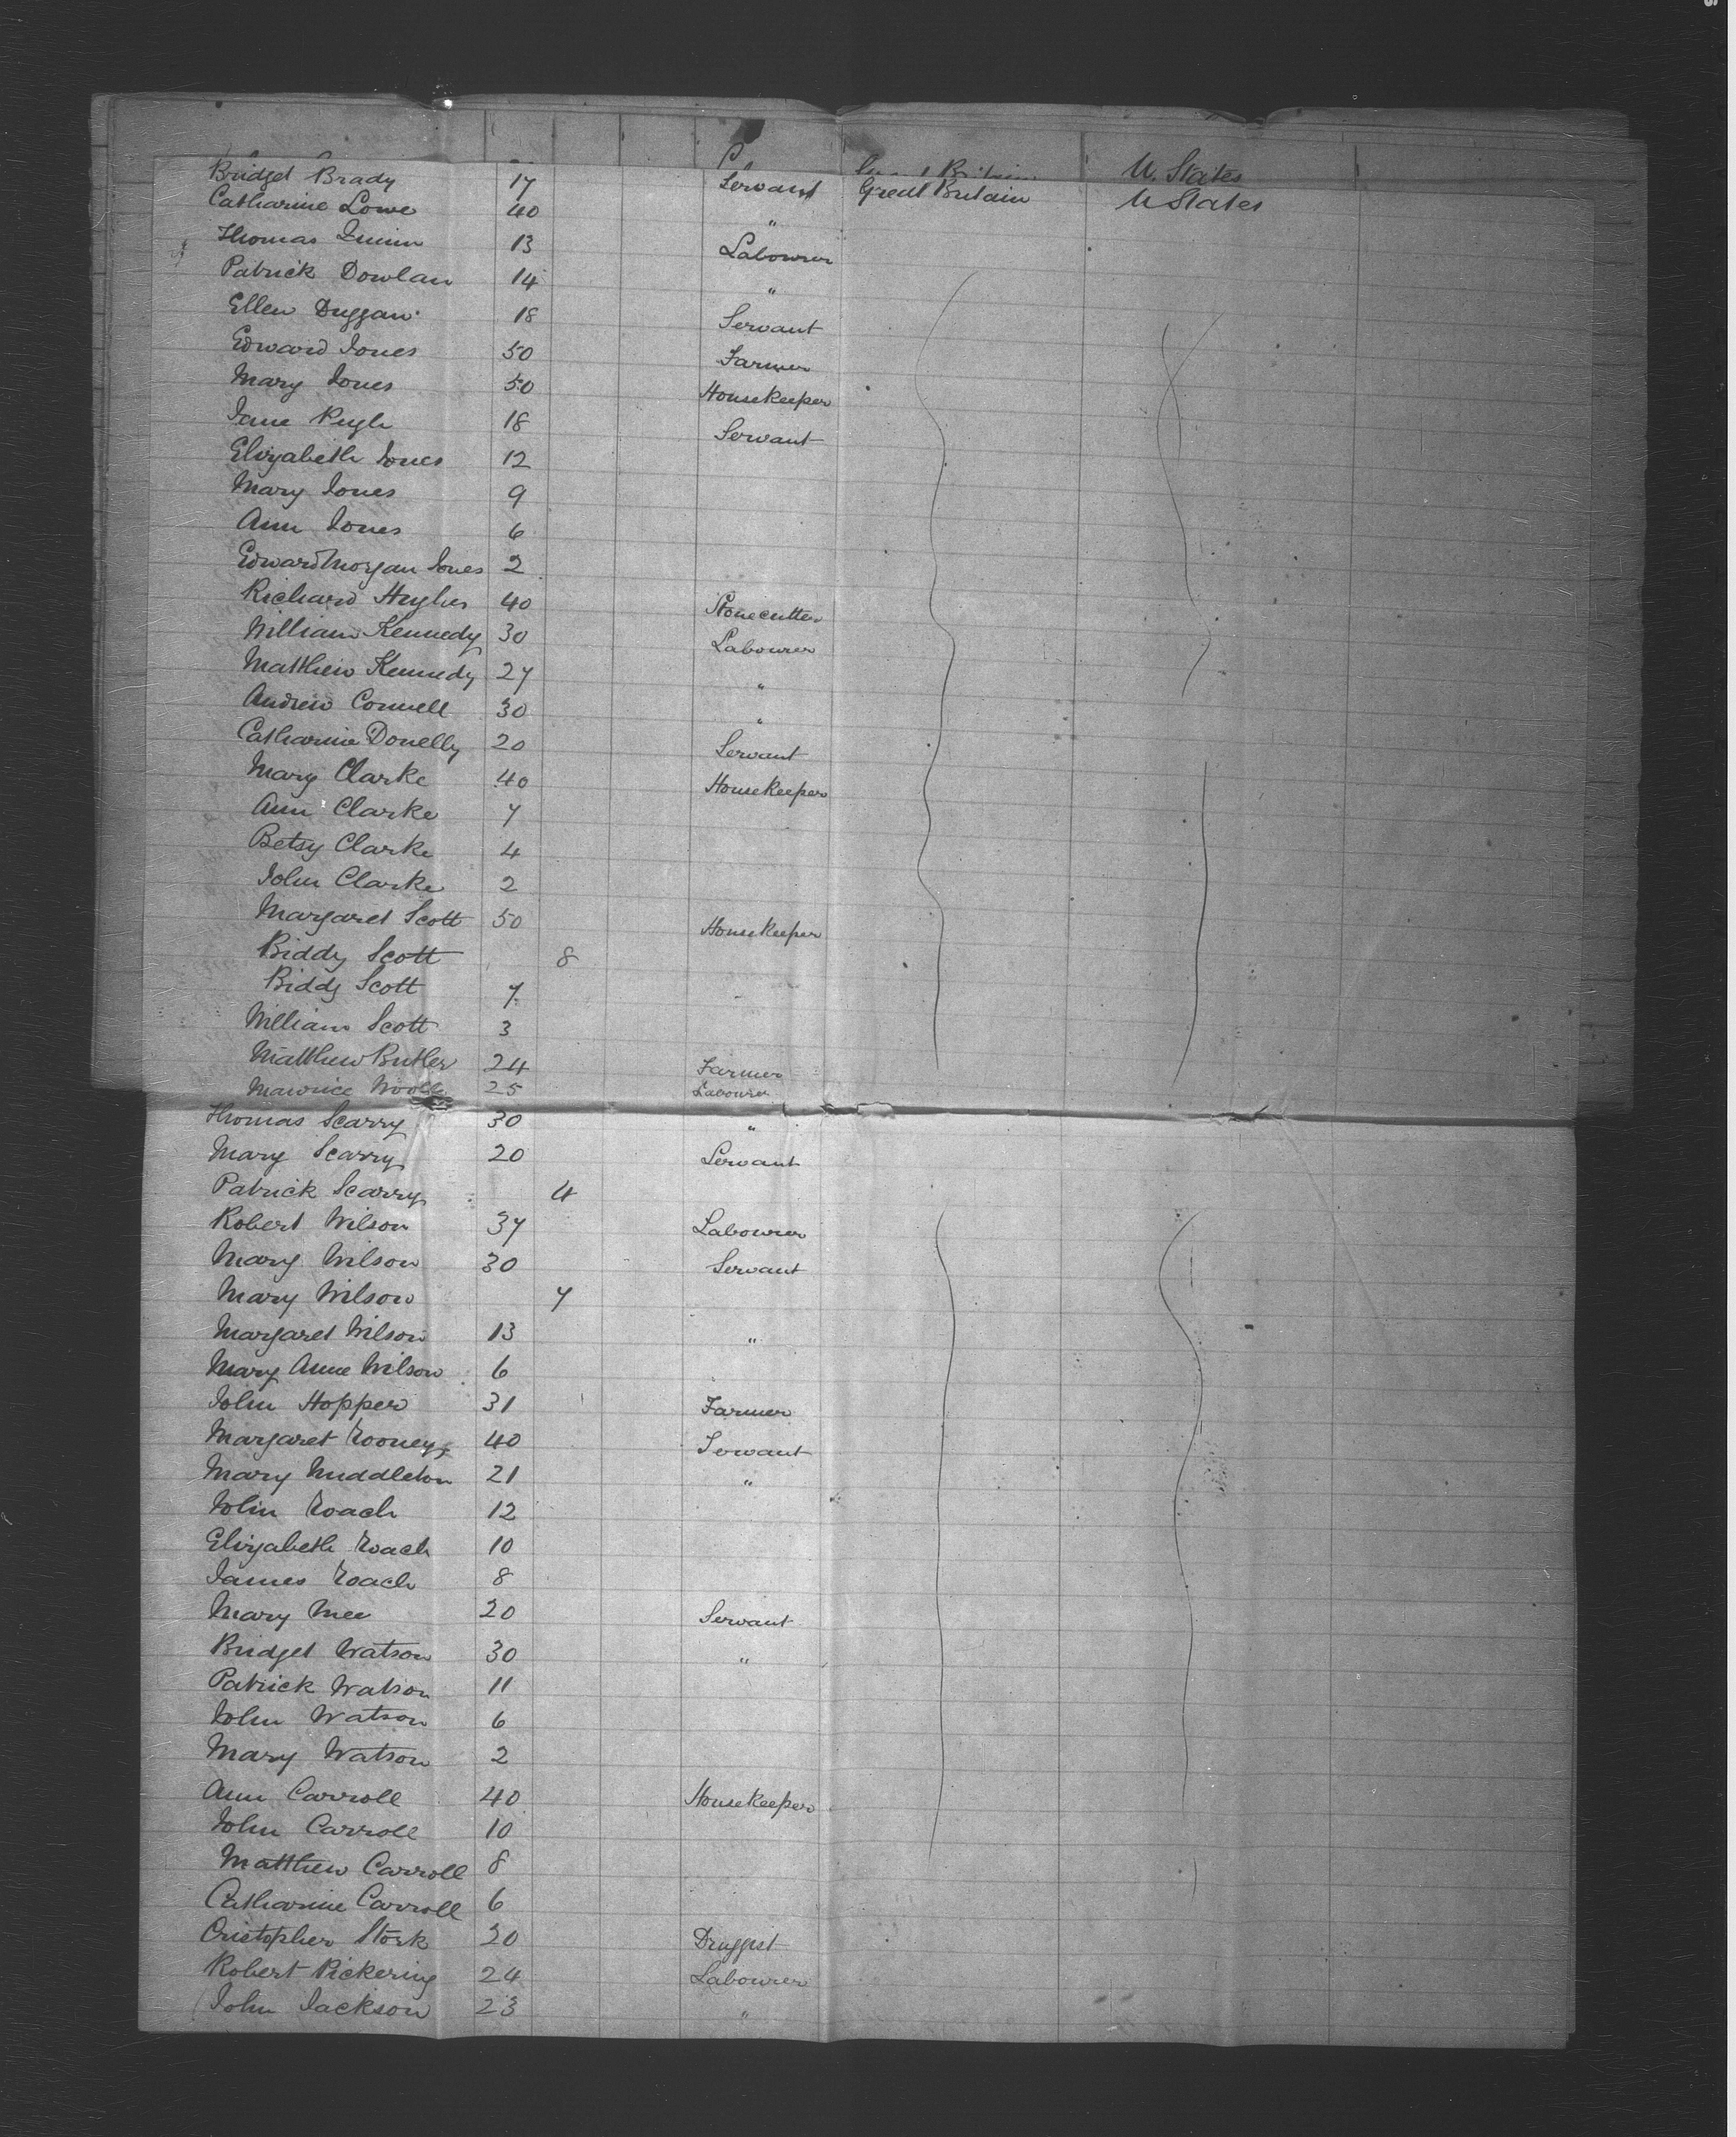 U. States
Bridget Brady 17 Servant Great Britain U States
Catharine Lowe 40 "
Thomas Quinn 13 Labourer
Patrick Dowlan 14 "
Ellen Duggan 18 Servant
Edward Jones 50 Farmer
Mary Jones 50 Housekeeper
Jane Pugh 18 Servant
Elizabeth Jones 12
Mary Jones 9
Ann Jones 6
Edward Morgan Jones 2
Richard Hughes 40 Stonecutter
William Kennedy 30 Labourer
Matthew Kennedy 27 "
Andrew Connell 30 "
Catharine Donelly 20 Servant
Mary Clarke 40 Housekeeper
Ann Clarke 7
Betsy Clarke 4
John Clarke 2
Margaret Scott 50 Housekeeper
Biddy Scott 8
Biddy Scott 7
William Scott 3
Matthew Butler 24 Farmer
Maurice 25 Labourer
Thomas Scarry 30 "
Mary Scarry 20 Servant
Patrick Scarry 4
Robert Wilson 37 Labourer
Mary Wilson 30 Servant
Mary Wilson 7
Margaret Wilson 13 "
Mary Anne Wilson 6
John Hopper 31 Farmer
Margaret Rooney 40 Servant
Mary Middleton 21 "
John Roach 12
Elizabeth Roach 10
James Roach 8
Mary Mee 20 Servant
Bridget Watson 30 "
Patrick Watson 11
John Watson 6
Mary Watson 2
Ann Carroll 40 Housekeeper
John Carroll 10
Matthew Carroll 8
Catharine Carroll 6
Cristopher Stork 20 Druggist
Robert Pickering 24 Labourer
John Jackson 23 "